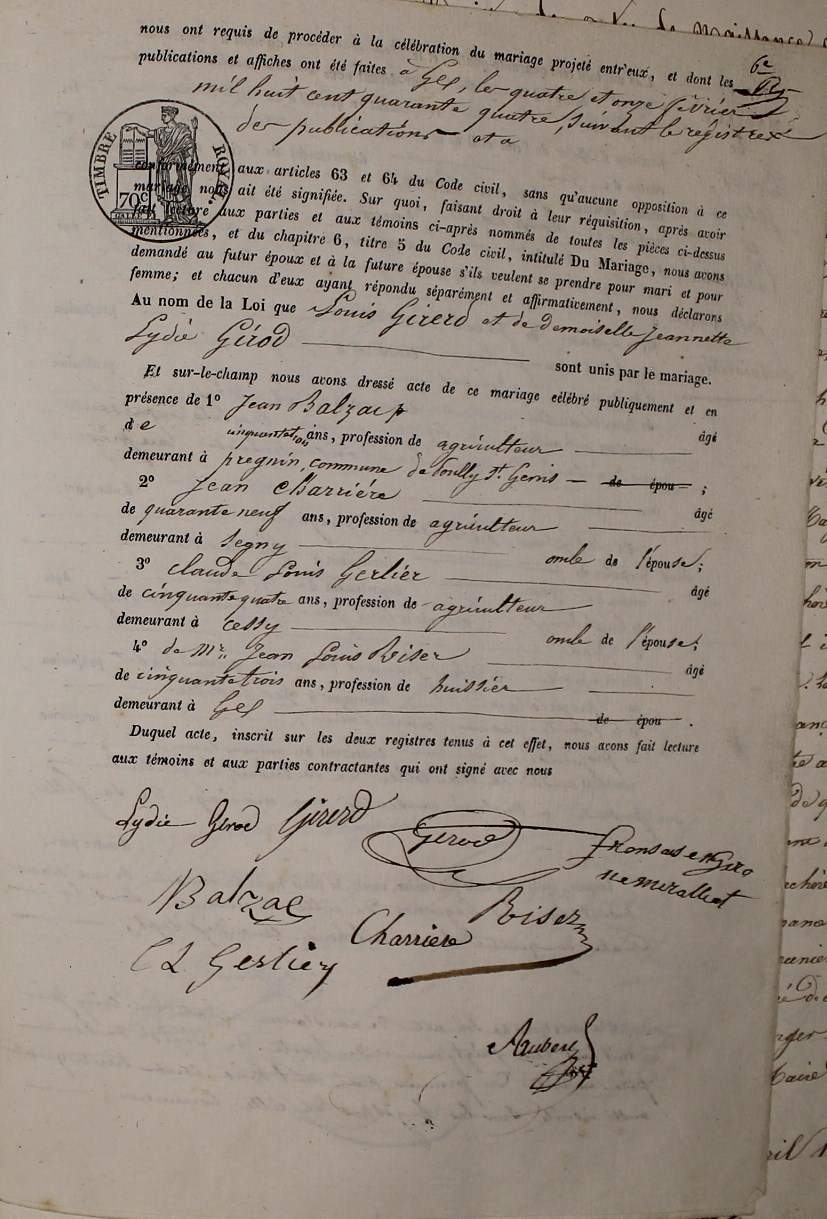 nous ont requis de procéder à la célébration du mariage projeté entr'eux, et dont les
publications et affiches ont été faites à Gex, les quatre et onze février
mil huit cent quarante quatre, suivant le registre
des publications et a
TIMBRE ROYAL
70c
conformément aux articles 63 et 64 du Code civil, sans qu'aucune opposition à ce
mariage nous ait été signifiée. Sur quoi, faisant droit à leur réquisition, après avoir
fait lecture aux parties et aux témoins ci-après nommés de toutes les pièces ci-dessus
mentionnées, et du chapitre 6, titre 5 du Code civil, intitulé Du Mariage, nous avons
demandé au futur époux et à la future épouse s'ils veulent se prendre pour mari et pour
femme; et chacun d'eux ayant répondu séparément et affirmativement, nous déclarons
Au nom de la Loi que Louis Girerd et de demoiselle Jeannette
Lydie Girod sont unis par le mariage.
Et sur-le-champ nous avons dressé acte de ce mariage célébré publiquement et en
présence de 1º Jean Balzac âgé
de cinquante trois ans, profession de agriculteur
demeurant à pregnin, commune de Pouilly St. Genis de épou ;
2º Jean Charrière âgé
de quarante neuf ans, profession de agriculteur
demeurant à Segny oncle de l'épouse;
3º Claude Louis Gerlier âgé
de cinquante quatre ans, profession de agriculteur
demeurant à Cessy oncle de l'épouse;
4º de Mr. Jean Louis Riser âgé
de cinquante trois ans, profession de huissier
demeurant à Gex de épou .
Duquel acte, inscrit sur les deux registres tenus à cet effet, nous avons fait lecture
aux témoins et aux parties contractantes qui ont signé avec nous
Lydie Girod Girerd Girod
Balzac Riser
C L Gerlier Charriere